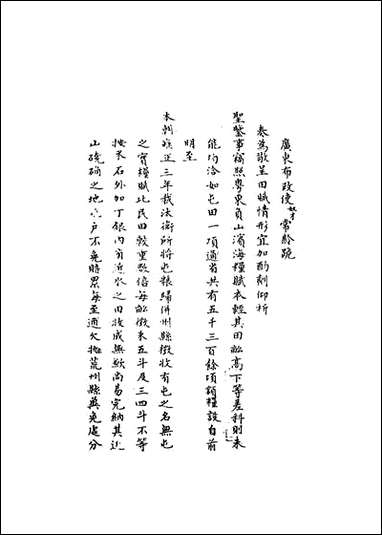 廣東布政使奴才常齡跪
奏為敬呈田賦情形宜加酌劑仰祈
聖鑒事竊照粵東負山濱海糧賦本輕其田畝高下等差科則未
能均洽如屯田一項通省共有五千三百餘項額糧設自前
明至
本朝雍正三年裁汰衛所將屯糧歸併州縣徵收有屯之名無屯
之實糧賦比民田較重數倍每畝徵米五斗及三四斗不等
按米石外加丁銀內有近水之田收成無歉尚易完納其近
山磽确之地屯戶不免賠累每至逋欠拋荒州縣英免處分